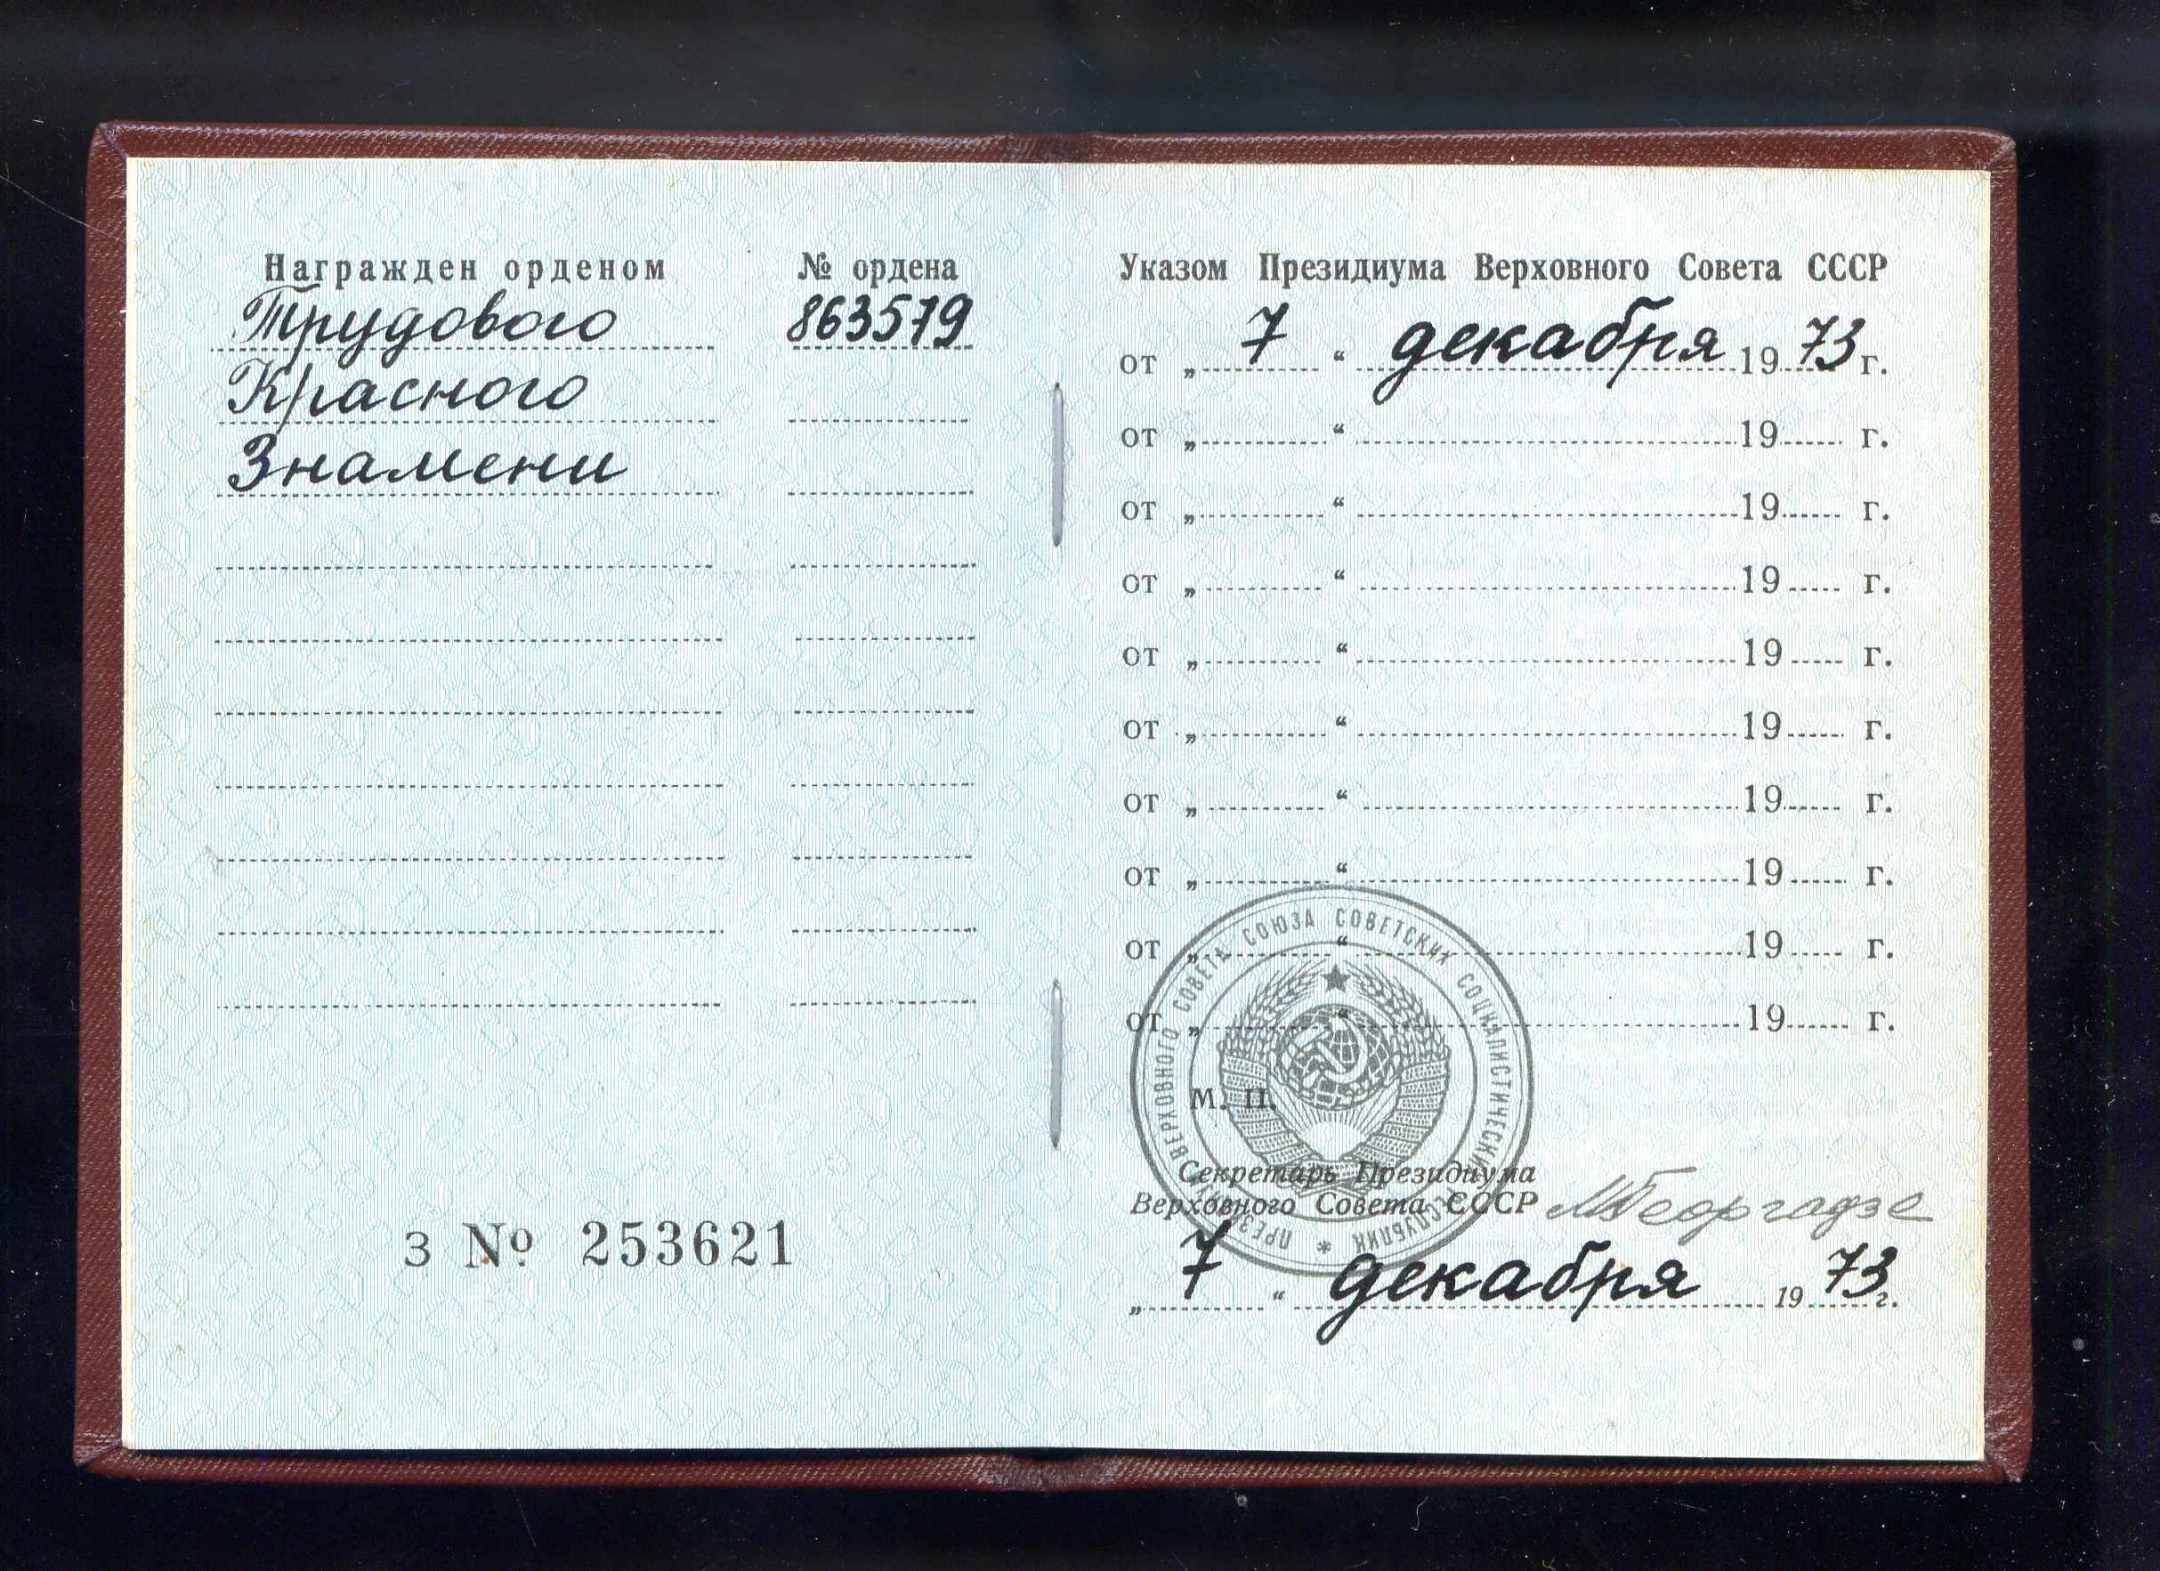 Награжден орденом
№ ордена
Трудового
863579
Красного
Знамени
З № 253621
Указом Президиума Верховного Совета СССР
от „ 7 “ декабря 1973 г.
от „ “ 19 г.
от „ “ 19 г.
от „ “ 19 г.
от „ “ 19 г.
от „ “ 19 г.
от „ “ 19 г.
от „ “ 19 г.
от „ “ 19 г.
от „ “ 19 г.
М. П.
ПРЕЗИДИУМ ВЕРХОВНОГО СОВЕТА СОЮЗА СОВЕТСКИХ СОЦИАЛИСТИЧЕСКИХ РЕСПУБЛИК *
Секретарь Президиума
Верховного Совета СССР МГеоргадзе
„ 7 “ декабря 1973 г.